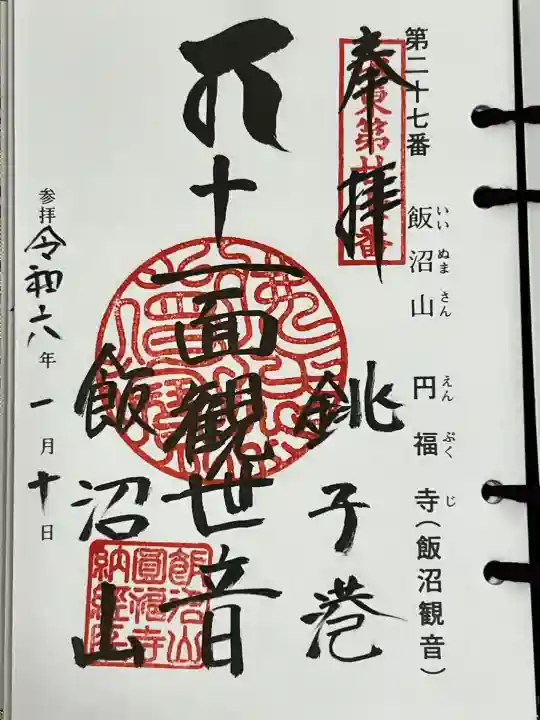 第二十七番 飯沼山 円福寺(飯沼観音)
いい ぬま さん えん ぷく じ
奉拝
銚子港
十一面観世音
飯沼山
飯沼山
圓福寺
納経印
参拝 令和六年一月十日